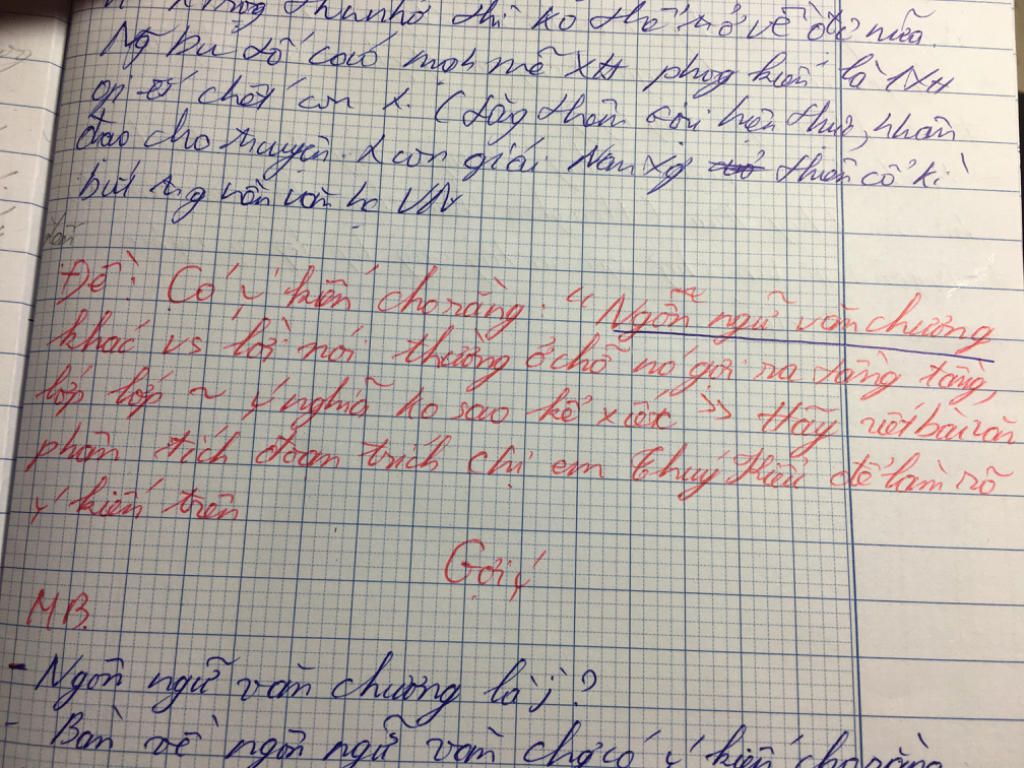 thì ko thể trở về đc nữa.
Ng bư tố cáo mạh mẽ XH phog kiến là 1 XH
chết con
đạo cho truyện. Con giái Nam Xg thiên cổ kì
bút ~ng nền văn họ VN
Đề: Có ý kiến cho rằng. "Ngôn ngữ văn chương
khác vs lời nói thường ở chỗ nó gợi ra tầng tầng,
lớp lớp ~ ý nghĩa ko sao kể xiết" Hãy viết bài văn
phân tích đoạn trích chị em Thuý Kiều để làm rõ
ý kiến trên
Gợi ý
MB.
- Ngôn ngữ văn chương là j?
- Bàn về ngôn ngữ văn chg có ý kiến cho rằng